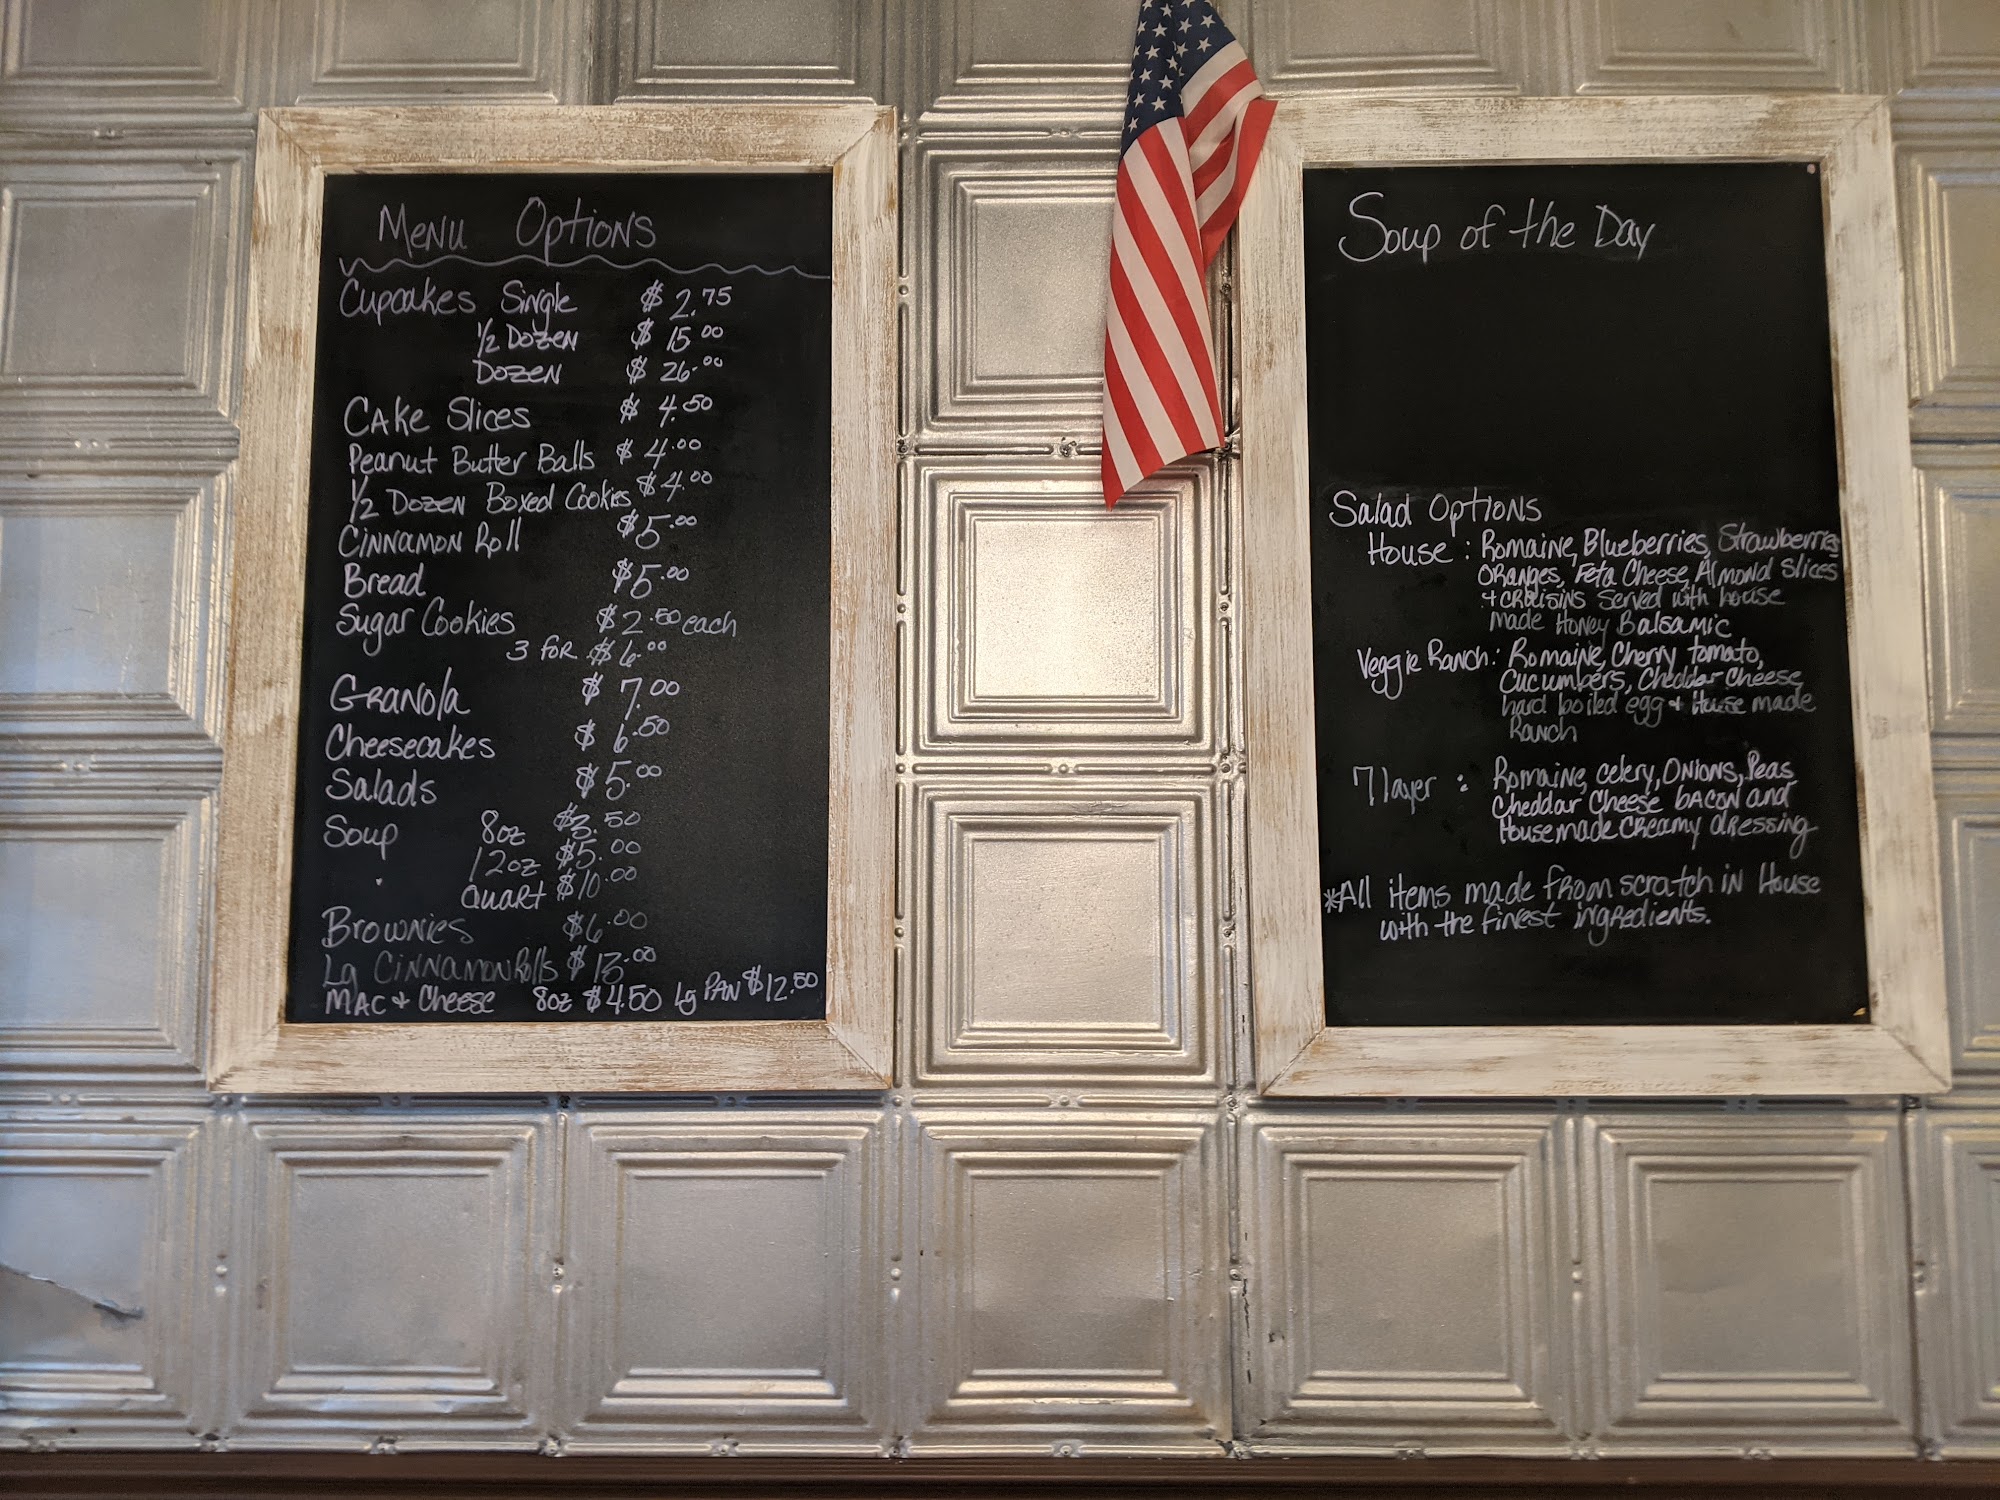 Menu Options
Cupcakes Single $2.75
1/2 Dozen $15.00
Dozen $26.00
Cake Slices $4.50
Peanut Butter Balls $4.00
1/2 Dozen Boxed Cookies $4.00
Cinnamon Roll $5.00
Bread $5.00
Sugar Cookies $2.50 each
3 for $6.00
Granola $7.00
Cheesecakes $6.50
Salads $5.00
Soup 8oz $3.50
12oz $5.00
Quart $10.00
Brownies $6.00
Lg Cinnamon Rolls $13.00
Mac & Cheese 8oz $4.50 Lg Pan $12.50
Soup of the Day
Salad Options
House: Romaine, Blueberries, Strawberries
Oranges, Feta Cheese, Almond Slices
+ craisins served with house
made Honey Balsamic
Veggie Ranch: Romaine, Cherry tomato,
Cucumbers, Cheddar Cheese
hard boiled egg + House made
Ranch
7 layer: Romaine, celery, Onions, Peas
Cheddar Cheese bacon and
Housemade creamy dressing
*All items made from scratch in House
with the finest ingredients.